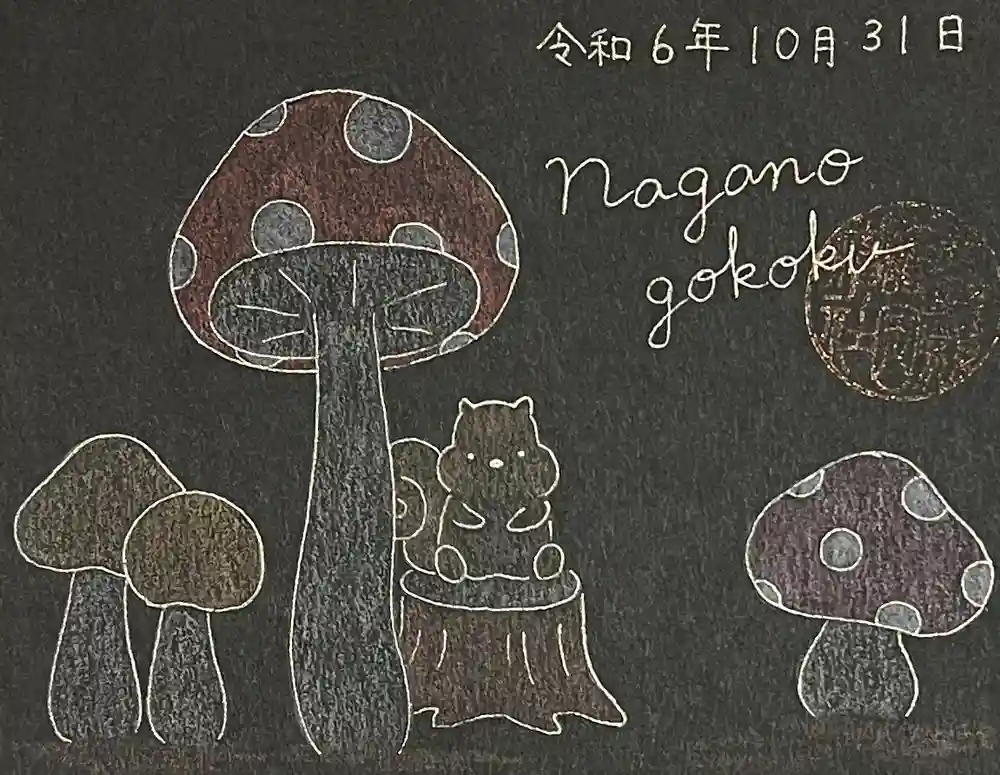 令和6年10月31日
Nagano
gokoku